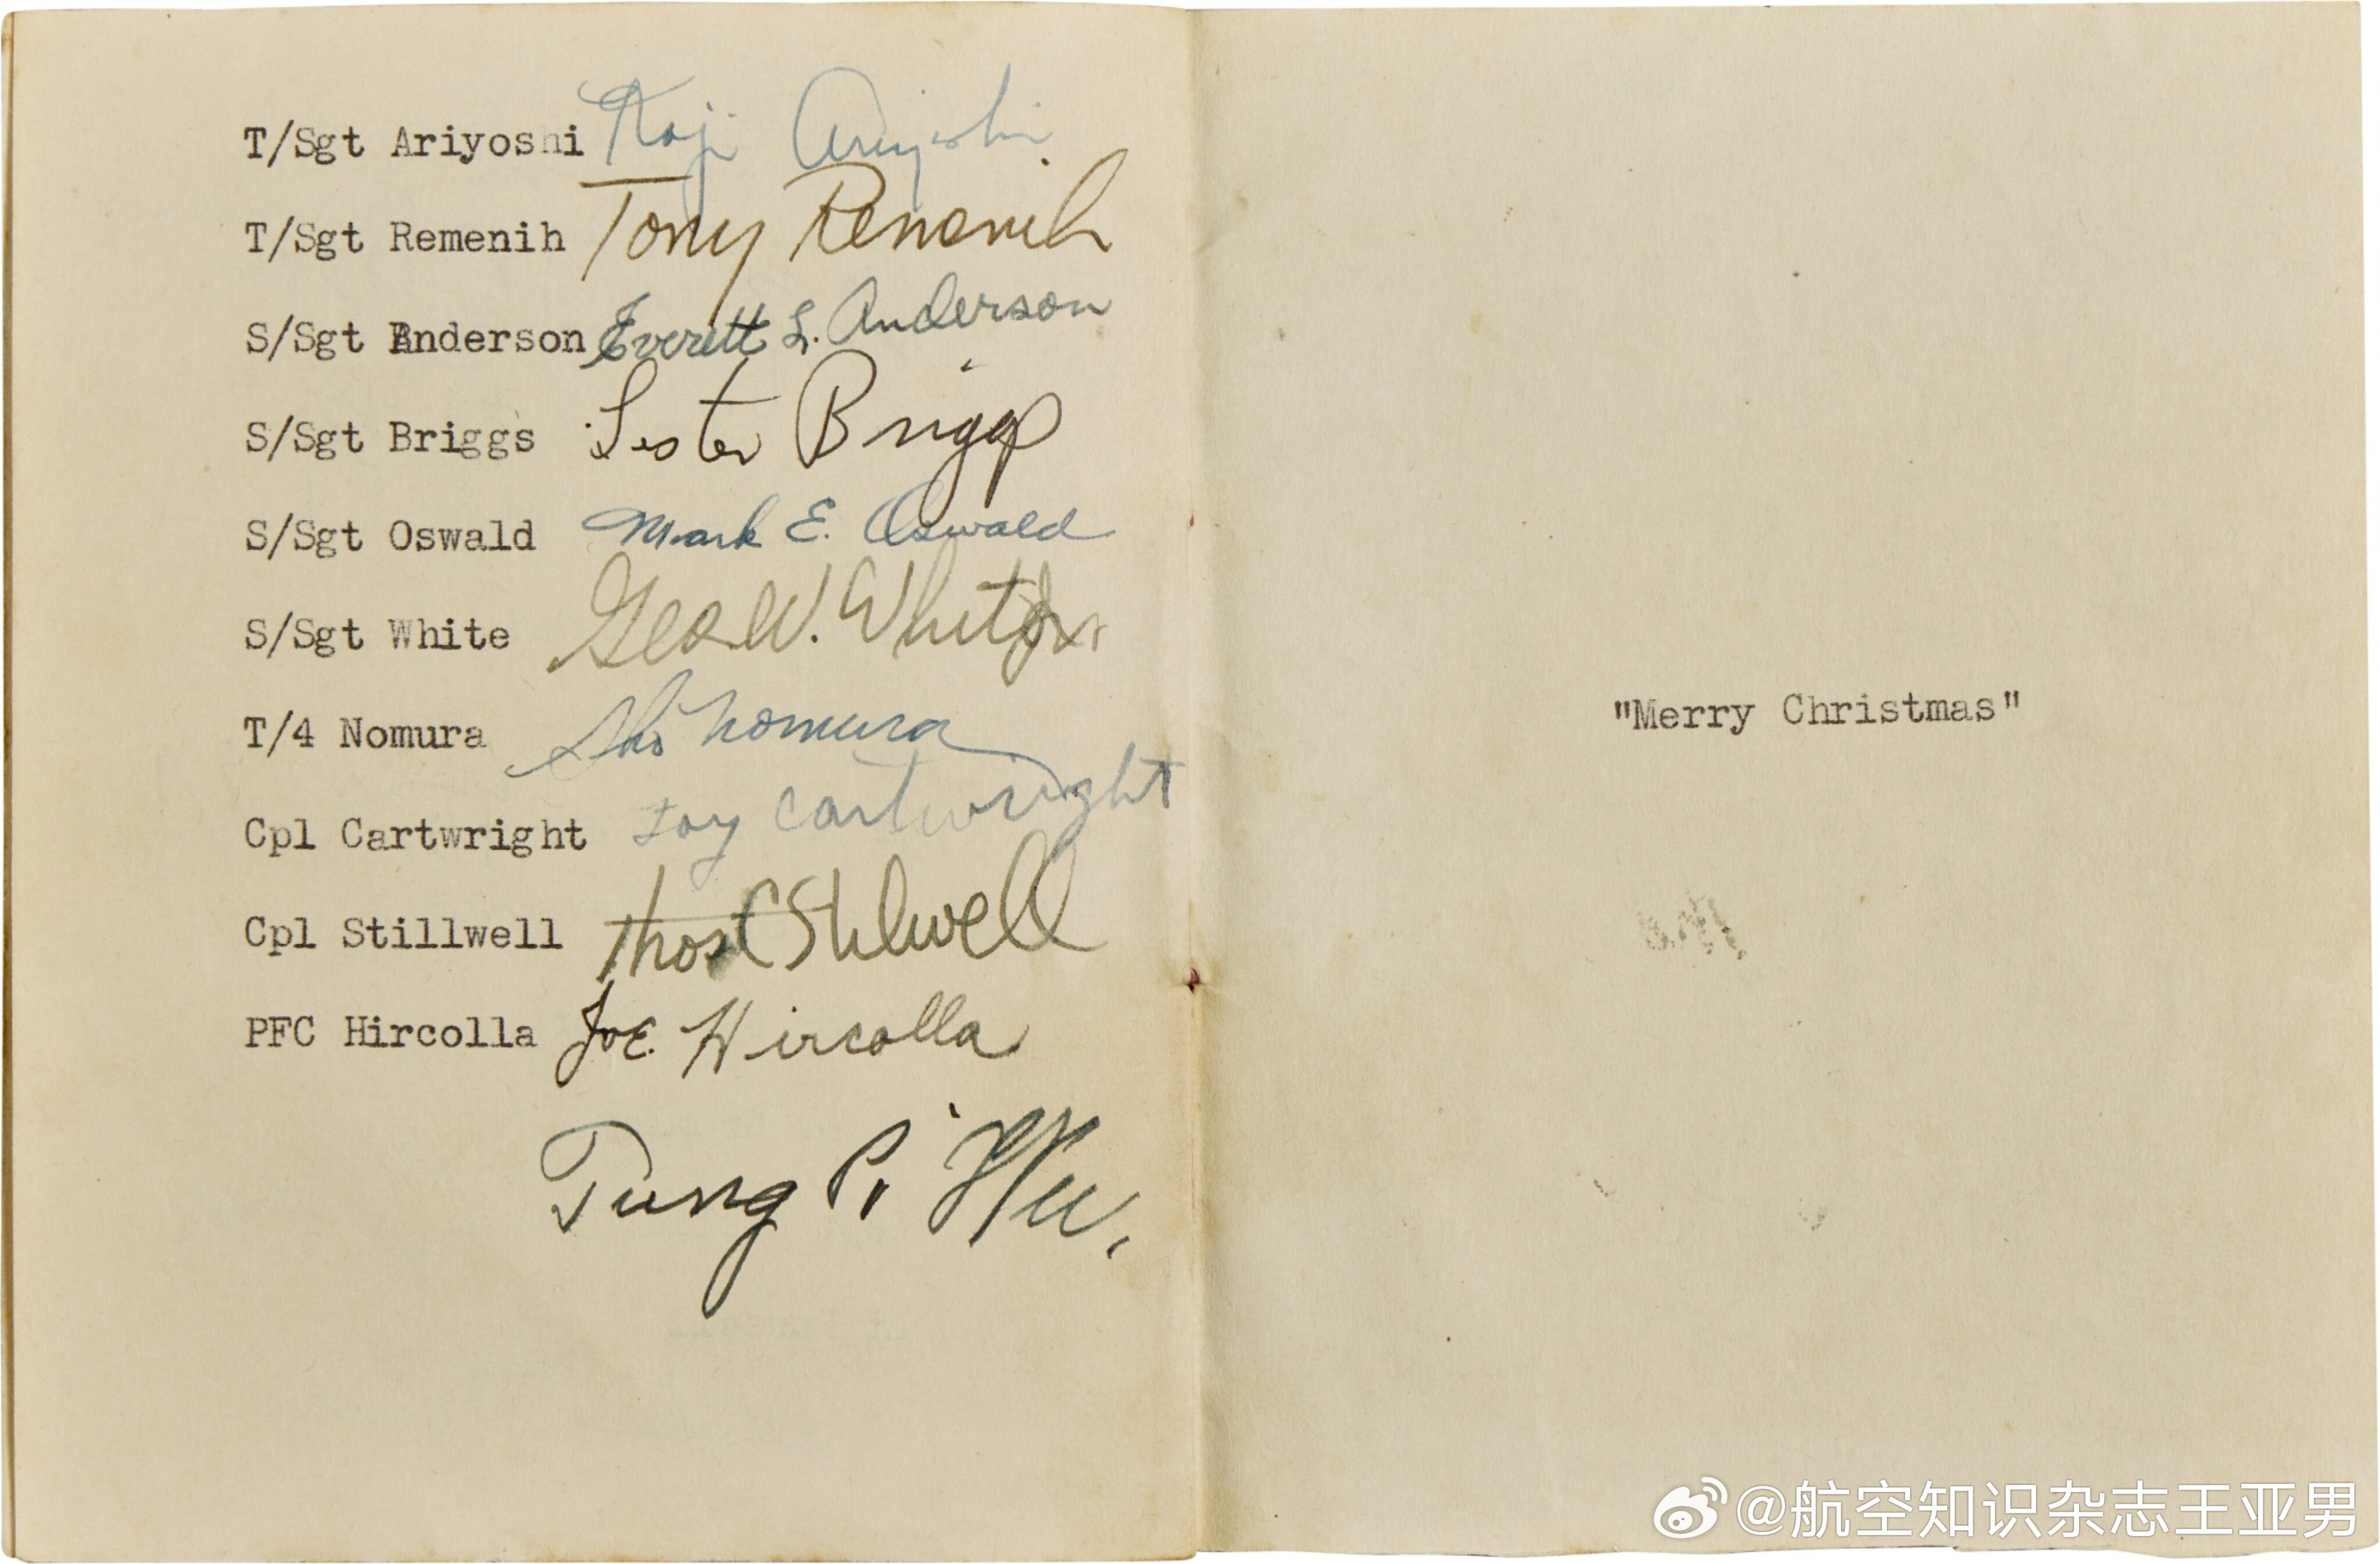 T/Sgt Ariyoshi Koji Ariyoshi
T/Sgt Remenih Tony Remenih
S/Sgt Anderson Everett L. Anderson
S/Sgt Briggs Lester Briggs
S/Sgt Oswald Mark E. Oswald
S/Sgt White Geo W. White Jr.
T/4 Nomura Sho Nomura
Cpl Cartwright Foy Cartwright
Cpl Stillwell Thos C Stilwell
PFC Hircolla Joe Hircolla
Tung Pi Wu.
"Merry Christmas"
@航空知识杂志王亚男